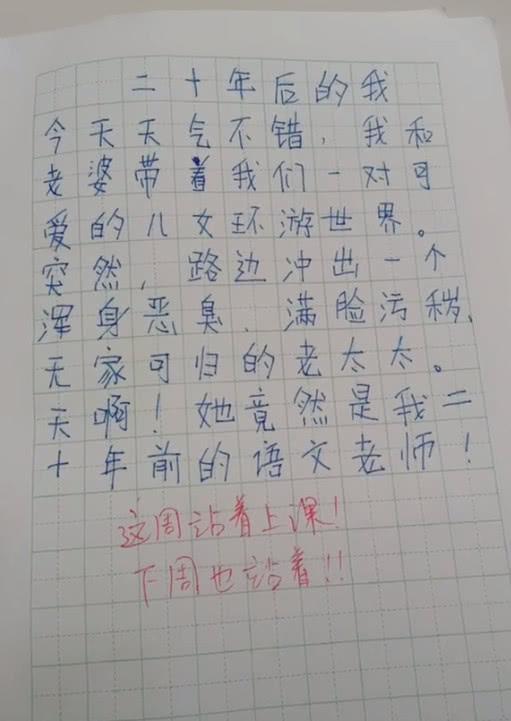 二十年后的我
今天天气不错，我和
老婆带着我们一对可
爱的儿女环游世界。
突然，路边冲出一个
浑身恶臭、满脸污秽、
无家可归的老太太。
天啊！她竟然是我二
十年前的语文老师！
这周站着上课！
下周也站着！！